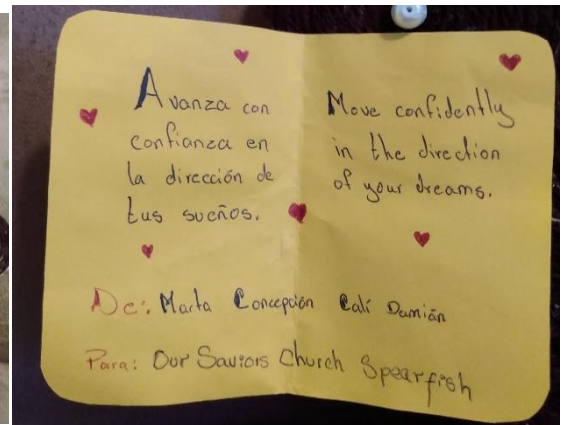 Avanza con
confianza en
la dirección de
tus sueños.
Move confidently
in the direction
of your dreams.
De: Marta Concepción Calí Damián
Para: Our Saviors Church Spearfish